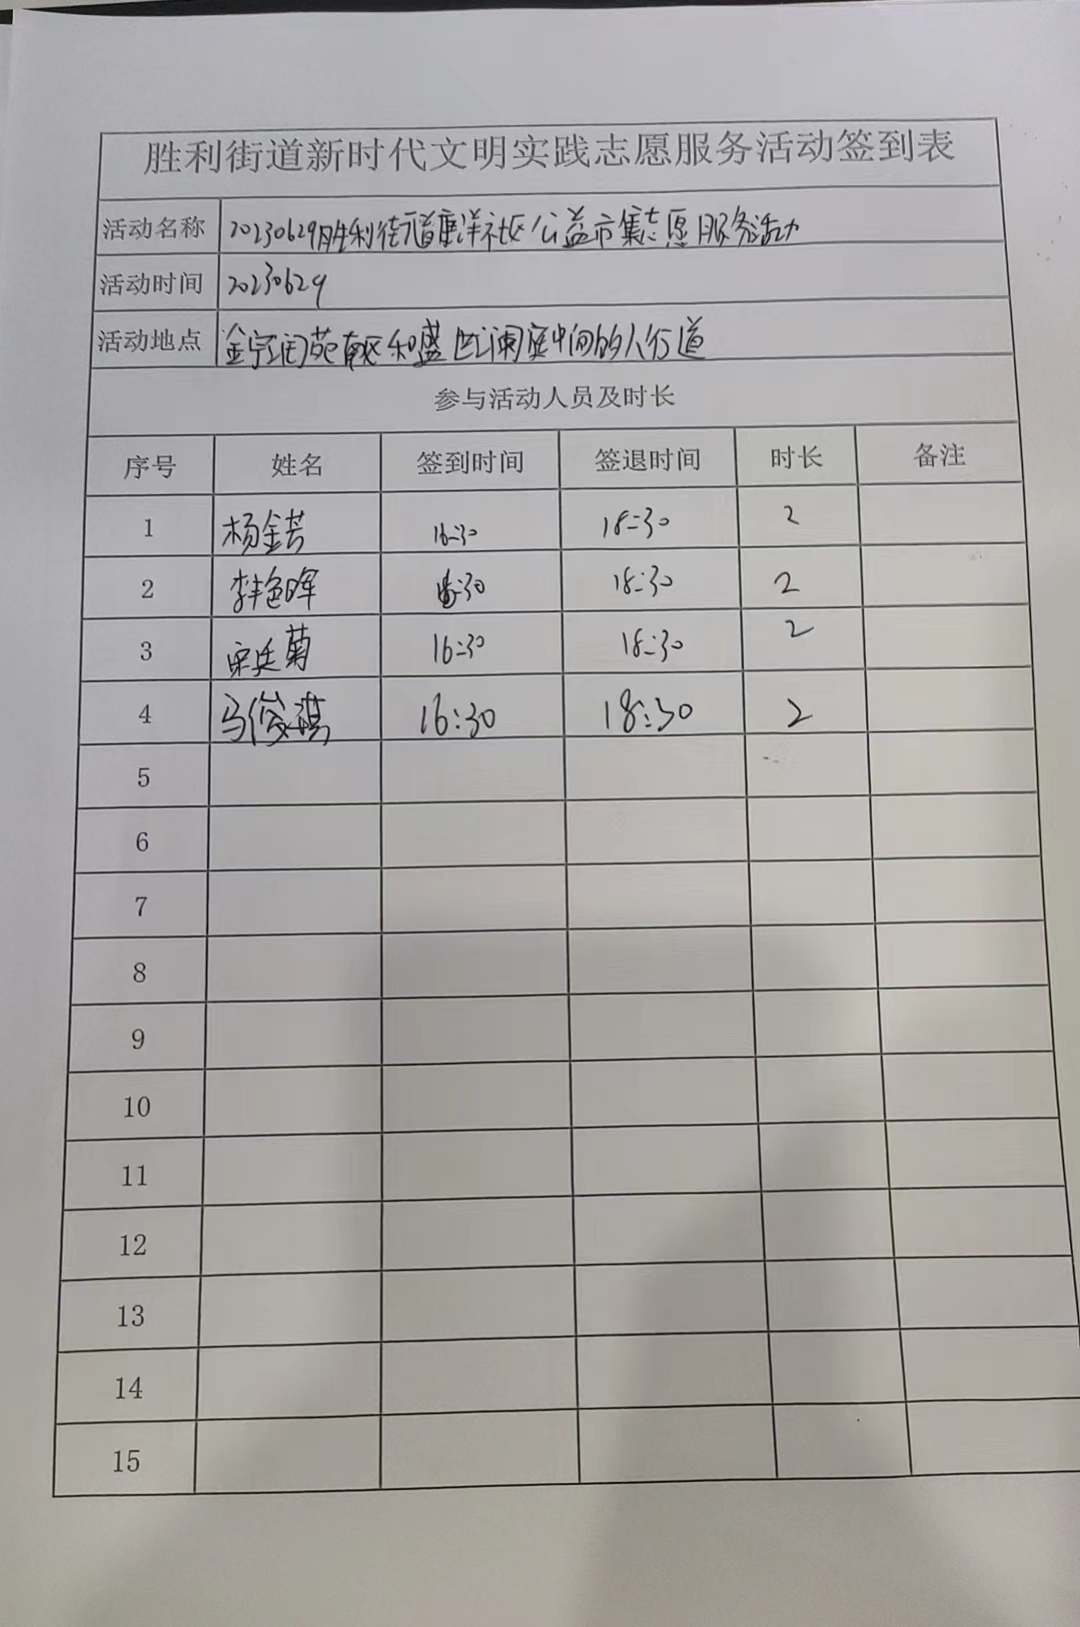 胜利街道新时代文明实践志愿服务活动签到表
活动名称 20230629胜利街道唐洋社区公益市集志愿服务活动
活动时间 20230629
活动地点 金宁润苑南区和盛世澜庭中间的人行道
参与活动人员及时长
序号 姓名 签到时间 签退时间 时长 备注
1 杨金芳 16:30 18:30 2
2 李艳晖 16:30 18:30 2
3 宋廷菊 16:30 18:30 2
4 马俊琪 16:30 18:30 2
5
6
7
8
9
10
11
12
13
14
15